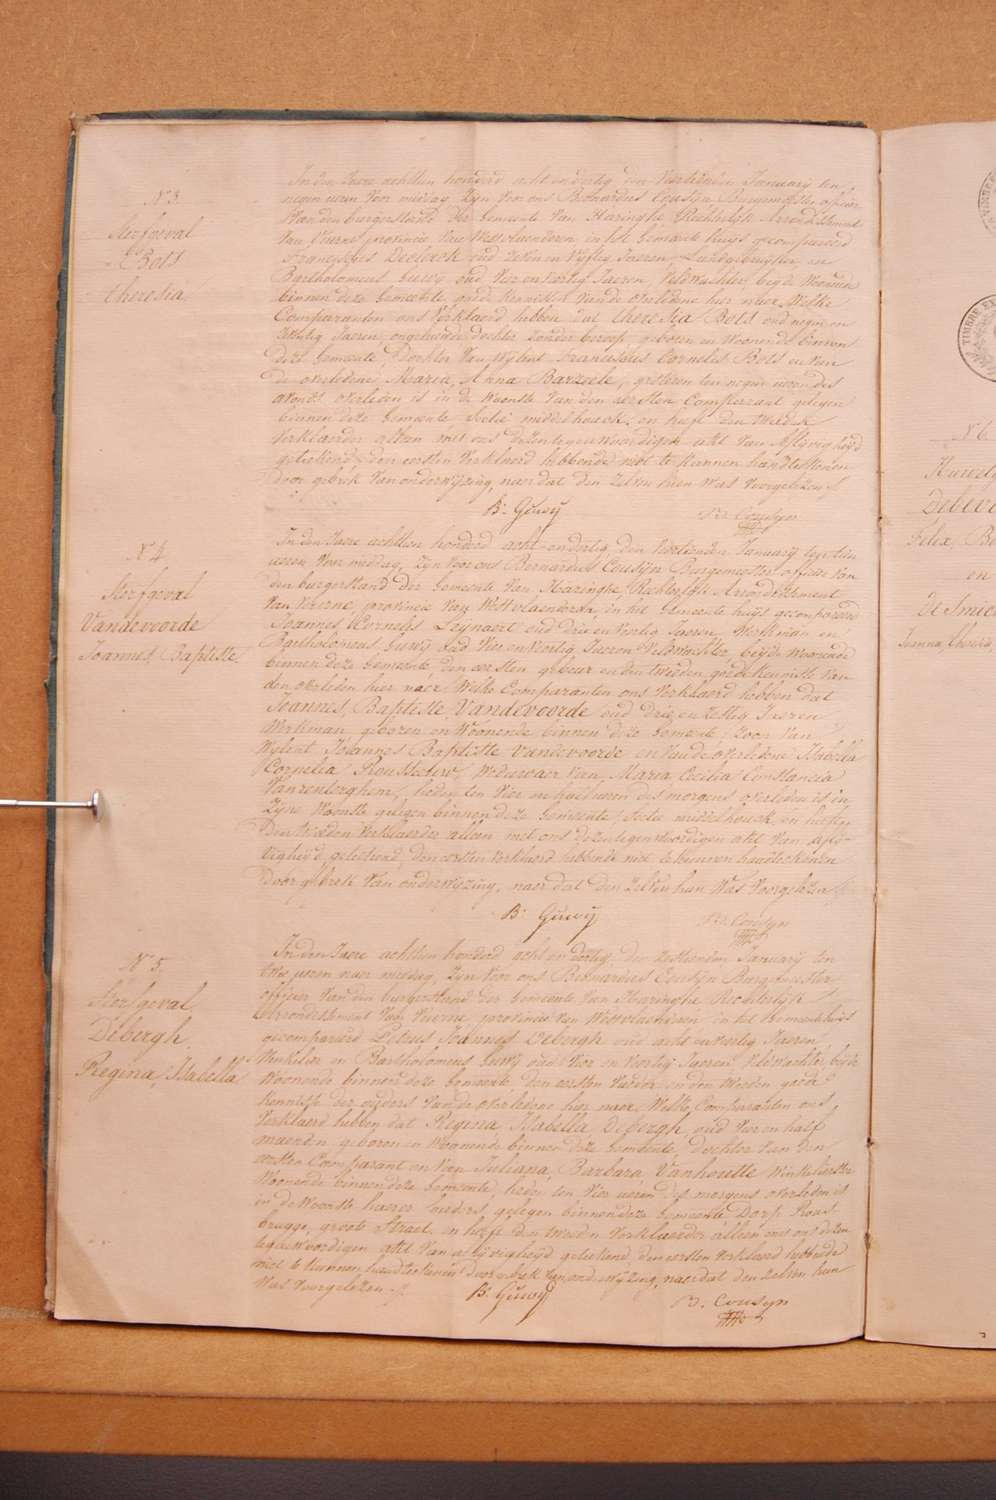 N° 3.
Sterfgeval
Bols
theresia
In den Jaere achttien honderd acht en dertig den Veertienden January ten
negen uren Voor middag Zyn Voor ons Bernardus Cousyn Burgemeester officier
Van den burgerstand der Gemeente Van Haringhe Rechterlyk Arrondissement
Van Veurne provincie Van Westvlaenderen in het Gemeente huys gecompareerd
Franciscus Declerck oud Zeven en Vyftig Jaeren, Landgebruyker en
Bartholomeus Guwy oud Vier en Veertig Jaeren, Veldwachter, beyde Woonende
binnen deze Gemeente, goede kennissen Van de overledene hier naer, Welke
Comparanten ons Verklaerd hebben dat theresia Bols oud negen en
Jaeren, ongehuwde dochter Zonder beroep geboren en Woonende binnen
deze Gemeente, Dochter Van Wylent Franciscus Cornelis Bols en Van
de overledene Maria, Anna Barzeele, gisteren ten negen uren des
avonds overleden is in de Woonste Van den eersten Comparant gelegen
binnen deze Gemeente Sectie middelhouck, en heeft den tweeden
Verklaerder alleen met ons dezen tegenwoordigen akt Van aflyvigheyd
geteekend, den eersten Verklaerd hebbende niet te kunnen handteekenen
Door gebrek Van onderwyzing, naer dat den Zelven hun Was Voorgelezen.
B. Guwy
B. Cousyn
N° 4
Sterfgeval
Vandevoorde
Joannes, Baptiste
In den Jaere achttien honderd acht en dertig, den Veertienden January ten tien
uren Voor middag, Zyn Voor ons Bernardus Cousyn Burgemeester officier Van
den burgerstand der Gemeente Van Haringhe Rechterlyk Arrondissement
Van Veurne, provincie Van Westvlaenderen, in het Gemeente huys gecompareerd
Joannes Cornelis oud drie en Veertig Jaeren, Werkman en
Bartholomeus Guwy oud Vier en Veertig Jaeren Veldwachter, beyde Woonende
binnen deze Gemeente, den eersten gebuer en den tweeden goede kennisse Van
den overleden hier naer, Welke Comparanten ons Verklaerd hebben dat
Joannes, Baptiste, Vandevoorde oud drie en Zestig Jaeren
Werkman geboren en Woonende binnen deze Gemeente, Zoon Van
Wylent Joannes Baptiste Vandevoorde en Van de overledene Isabella
Cornelia Weduwaer Van Maria Cecilia Constancia
Vanrenterghem, heden ten Vier en half uren des morgens overleden is in
Zyne Woonste gelegen binnen deze Gemeente, Sectie middelhouck, en heeft
Den tweeden Verklaerder alleen met ons dezen tegenwoordigen akt Van afly-
vigheyd geteekend, den eersten Verklaerd hebbende niet te kunnen handteekenen
Door gebrek Van onderwyzing, naer dat den Zelven hun Was Voorgelezen
B. Guwy
B. Cousyn
N° 5.
Sterfgeval
Debergh
Regina, Isabella
In den Jaere achttien honderd acht en dertig, den Zestienden January ten
uren naer middag, Zyn Voor ons Bernardus Cousyn Burgemeester
officier Van den burgerstand der Gemeente Van Haringhe Rechterlyk
Arrondissement Van Veurne, provincie Van Westvlaenderen in het Gemeentehuys
gecompareerd Petrus Joannes Debergh oud acht en Veertig Jaeren,
Winkelier en Bartholomeus Guwy oud Vier en Veertig Jaeren, Veldwachter, beyde
Woonende binnen deze Gemeente, den eersten Vader en den tweeden goede
kennisse der ouders Van de overledene hier naer, Welke Comparanten ons
Verklaerd hebben dat Regina Isabella Debergh, oud Vier en half
maenden geboren en Woonende binnen deze Gemeente, Dochter Van den
eersten Comparant en Van Juliana, Barbara, Vanhoutte Winkelierster
Woonende binnen deze Gemeente, heden ten Vier uren des morgens overleden is
in de Woonste haerer ouders gelegen binnen deze Gemeente Dorp Rous-
brugge, groote Straet, en heeft den tweeden Verklaerder alleen met ons dezen
tegenwoordigen akt Van aflyvigheyd geteekend, den eersten Verklaerd hebbende
niet te kunnen handteekenen Door gebrek Van onderwyzing, naer dat den Zelven hun
Was Voorgelezen
B. Guwy
B. Cousyn
N° 6.
en